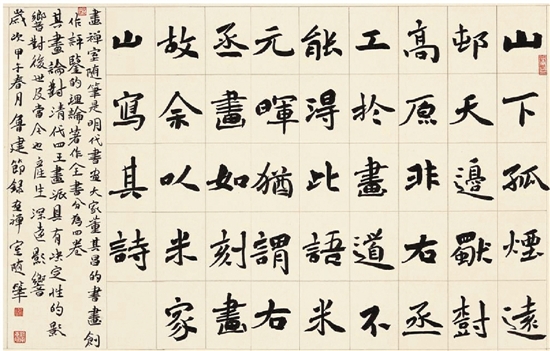 山下孤煙遠
邨天邊獨樹
高原非右丞
工於畫道不
能得此語米
元暉猶謂右
丞畫如刻畫
故余以米家
山寫其詩
畫禪室隨筆是明代書畫大家董其昌的書畫創
作評鑒的理論著作全書分為四卷
其畫論對清代四王畫派具有決定性的影
響對後世及當今也產生深遠影響
歲次甲午春月建節錄畫禪室隨筆